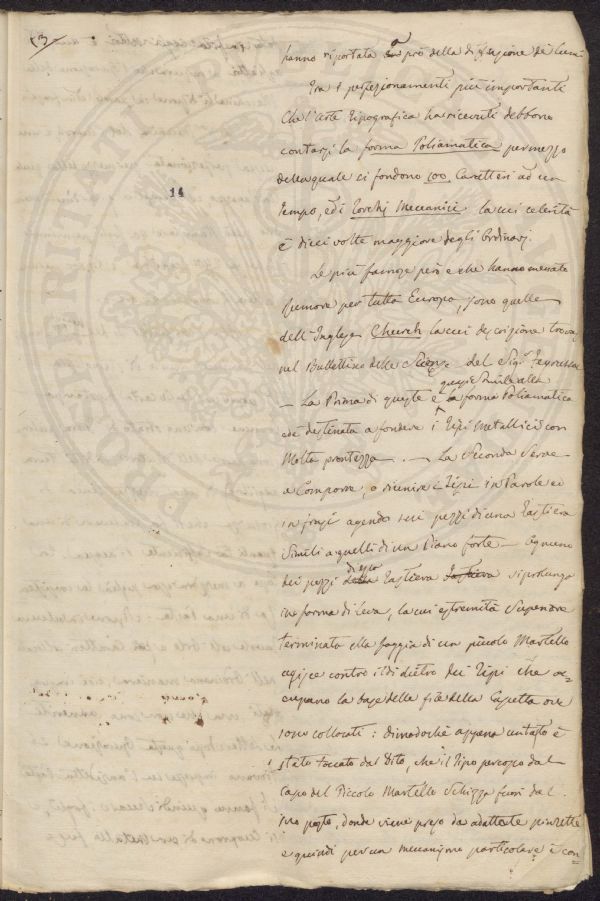 53
14
hanno riportata in prò della diffusione dei lumi
Fra i perfezionamenti più importanti
Che l'arte Tipografica ha ricevuti debbono
contarsi la forma Poliamatica per mezzo
della quale si fondono 200 Caratteri ad un
Tempo, ed i Torchj Meccanici la cui celerità
è dieci volte maggiore degli Ordinarj.
Le più famose però e che hanno menato
rumore per tutta Europa, sono quelle
dell'Inglese Church la cui descrizione trovasi
nel Bullettino delle Scienze del Sigr. Ferussac
quasi simile alla
— La Prima di queste è la forma Poliamatica
ed è destinata a fondere i Tipi Metallici con
Molta prontezza. — La Seconda Serve
a Comporre, o riunire i Tipi in Parole ed
in frasi agendo sui pezzi di una Tastiera
Simili a quelli di un Piano forte — Ognuno
dei pezzi di essa Tastiera si prolunga
in forma di Leva, la cui estremità Superiore
terminata alla foggia di un piccolo Martello
agisce contro il di dietro dei Tipi che oc=
cupano la base delle file della Cassetta ove
sono collocati: dimodochè appena un tasto è
stato toccato dal Dito, che il Tipo percosso dal
capo del Piccolo Martello Schizza fuori dal
suo posto, donde viene preso da adattate pinzette
e quindi per un meccanismo particolare è con-